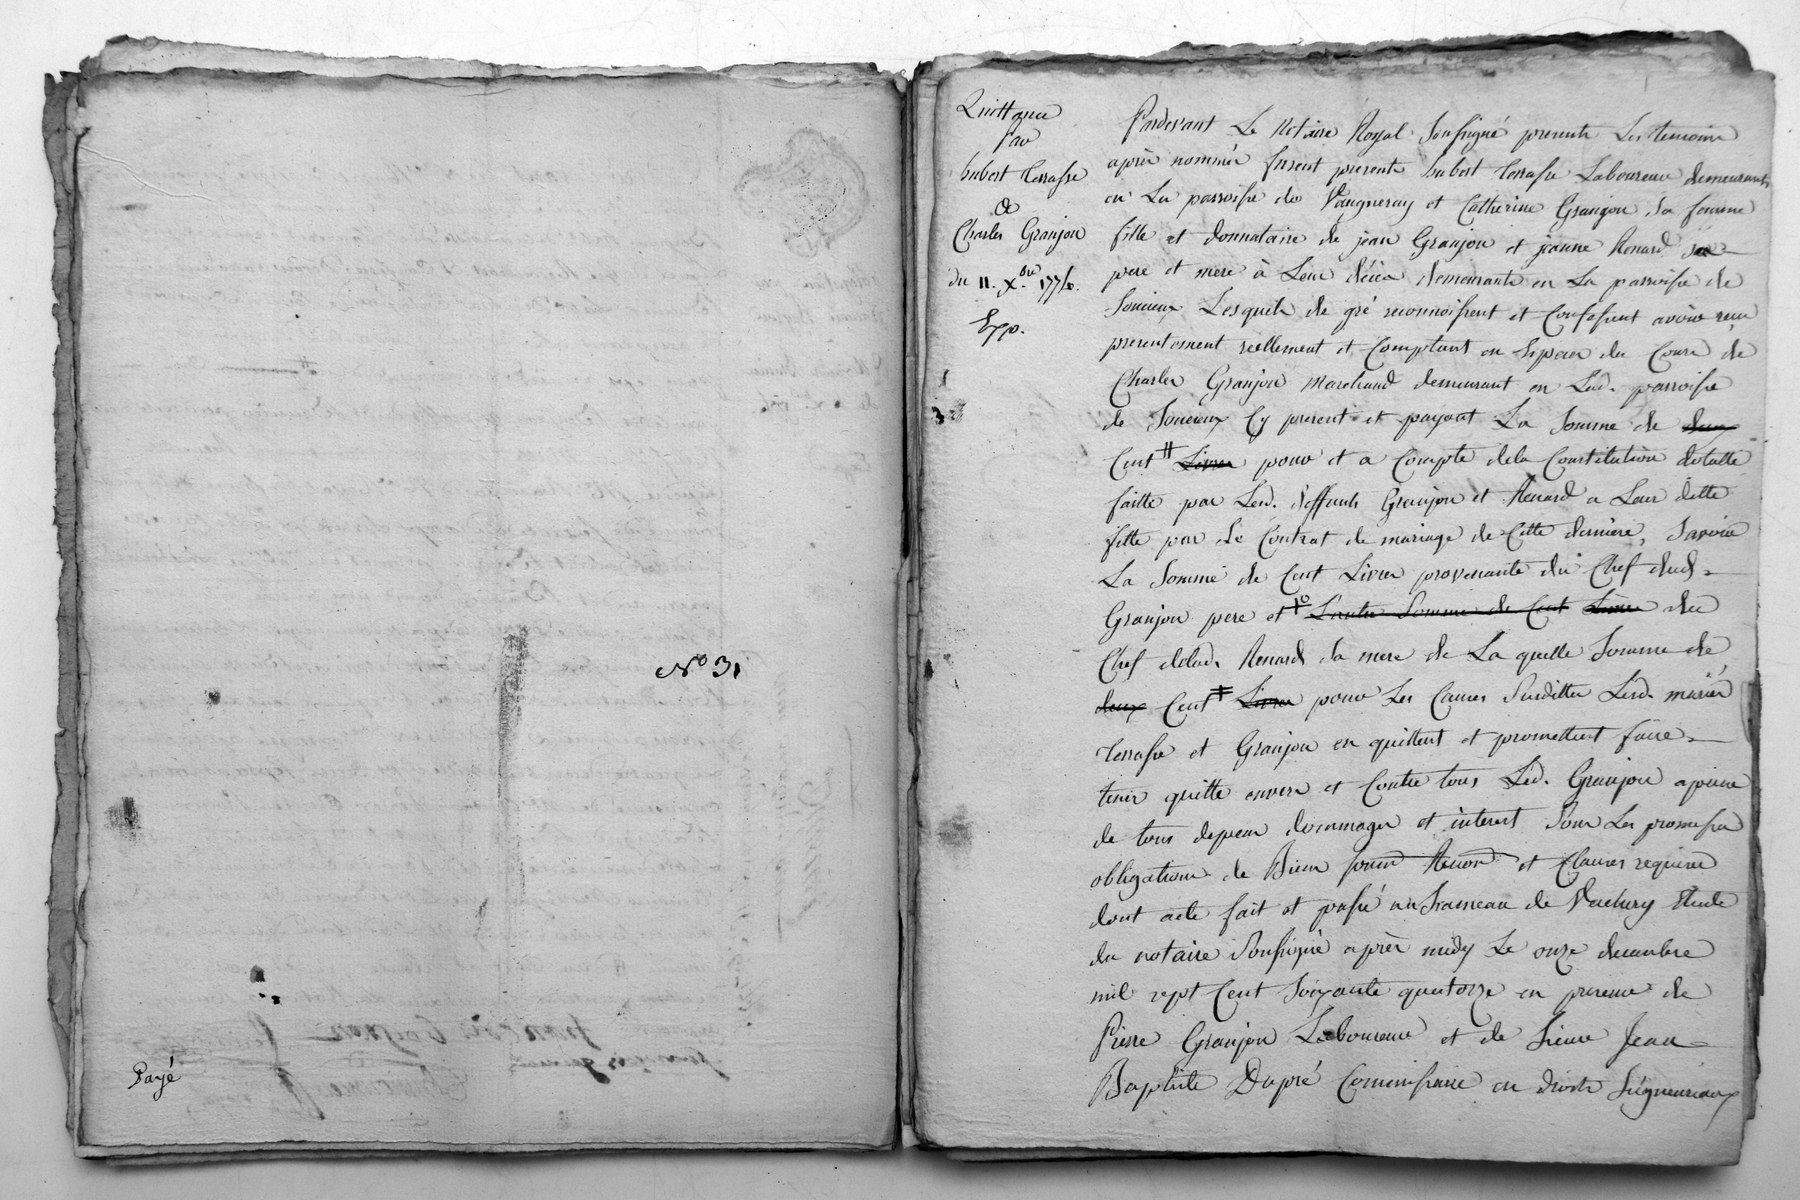 N° 31
Payé
Quittance
Par
hubert terrasse
A
Charles Granjon
du 11. Xbre 1774.
Exp.
Pardevant Le Notaire Royal Soussigné presents Les temoins
après nommés furent presents hubert terrasse Laboureur demeurants
en La parroisse de Vaugneray et Catherine Granjon sa femme
fille et donnataire de jean Granjon et jeanne Renard ses
pere et mere à Leur décès demeurants en La parroisse de
Soucieux Lesquels de gré reconnoissent et Confessent avoir reçu
presentement reellement et Comptant en Especes du Cours de
Charles Granjon marchand demeurant en Lad. parroisse
de Soucieux Cy present et payant La Somme de deux
Cent ⧺ Livres pour et a Compte dela Constitution dotalle
faitte par Lesd. deffunts Granjon et Renard a Leur ditte
fille par Le Contrat de mariage de Cette derniere, Savoir
La Somme de Cent Livres provenante du Chef dud.
Granjon pere et L'autre Somme de Cent Livres du
Chef delad. Renard sa mere de La quelle Somme de
deux Cent ⧺ Livres pour Les Causes Surdittes Lesd. mariés
terrasse et Granjon en quittent et promettent faire
tenir quitte envers et Contre tous Led. Granjon a peine
de tous depens dommages et interest Sous Les promesses
obligations de Biens et Clauses requises
dont acte fait et passé au hameau de Vachery Etude
du notaire Soussigné après midy Le onze decembre
mil sept Cent Soixante quatorze en presence de
Pierre Granjon Laboureur et de Sieur Jean
Baptiste Dupré Commissaire en droits Seigneuriaux